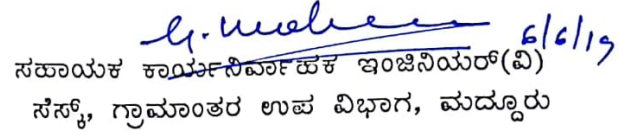 6/6/19
ಸಹಾಯಕ ಕಾರ್ಯನಿರ್ವಾಹಕ ಇಂಜಿನಿಯರ್(ವಿ)
ಸೆಸ್ಕ್, ಗ್ರಾಮಾಂತರ ಉಪ ವಿಭಾಗ, ಮದ್ದೂರು